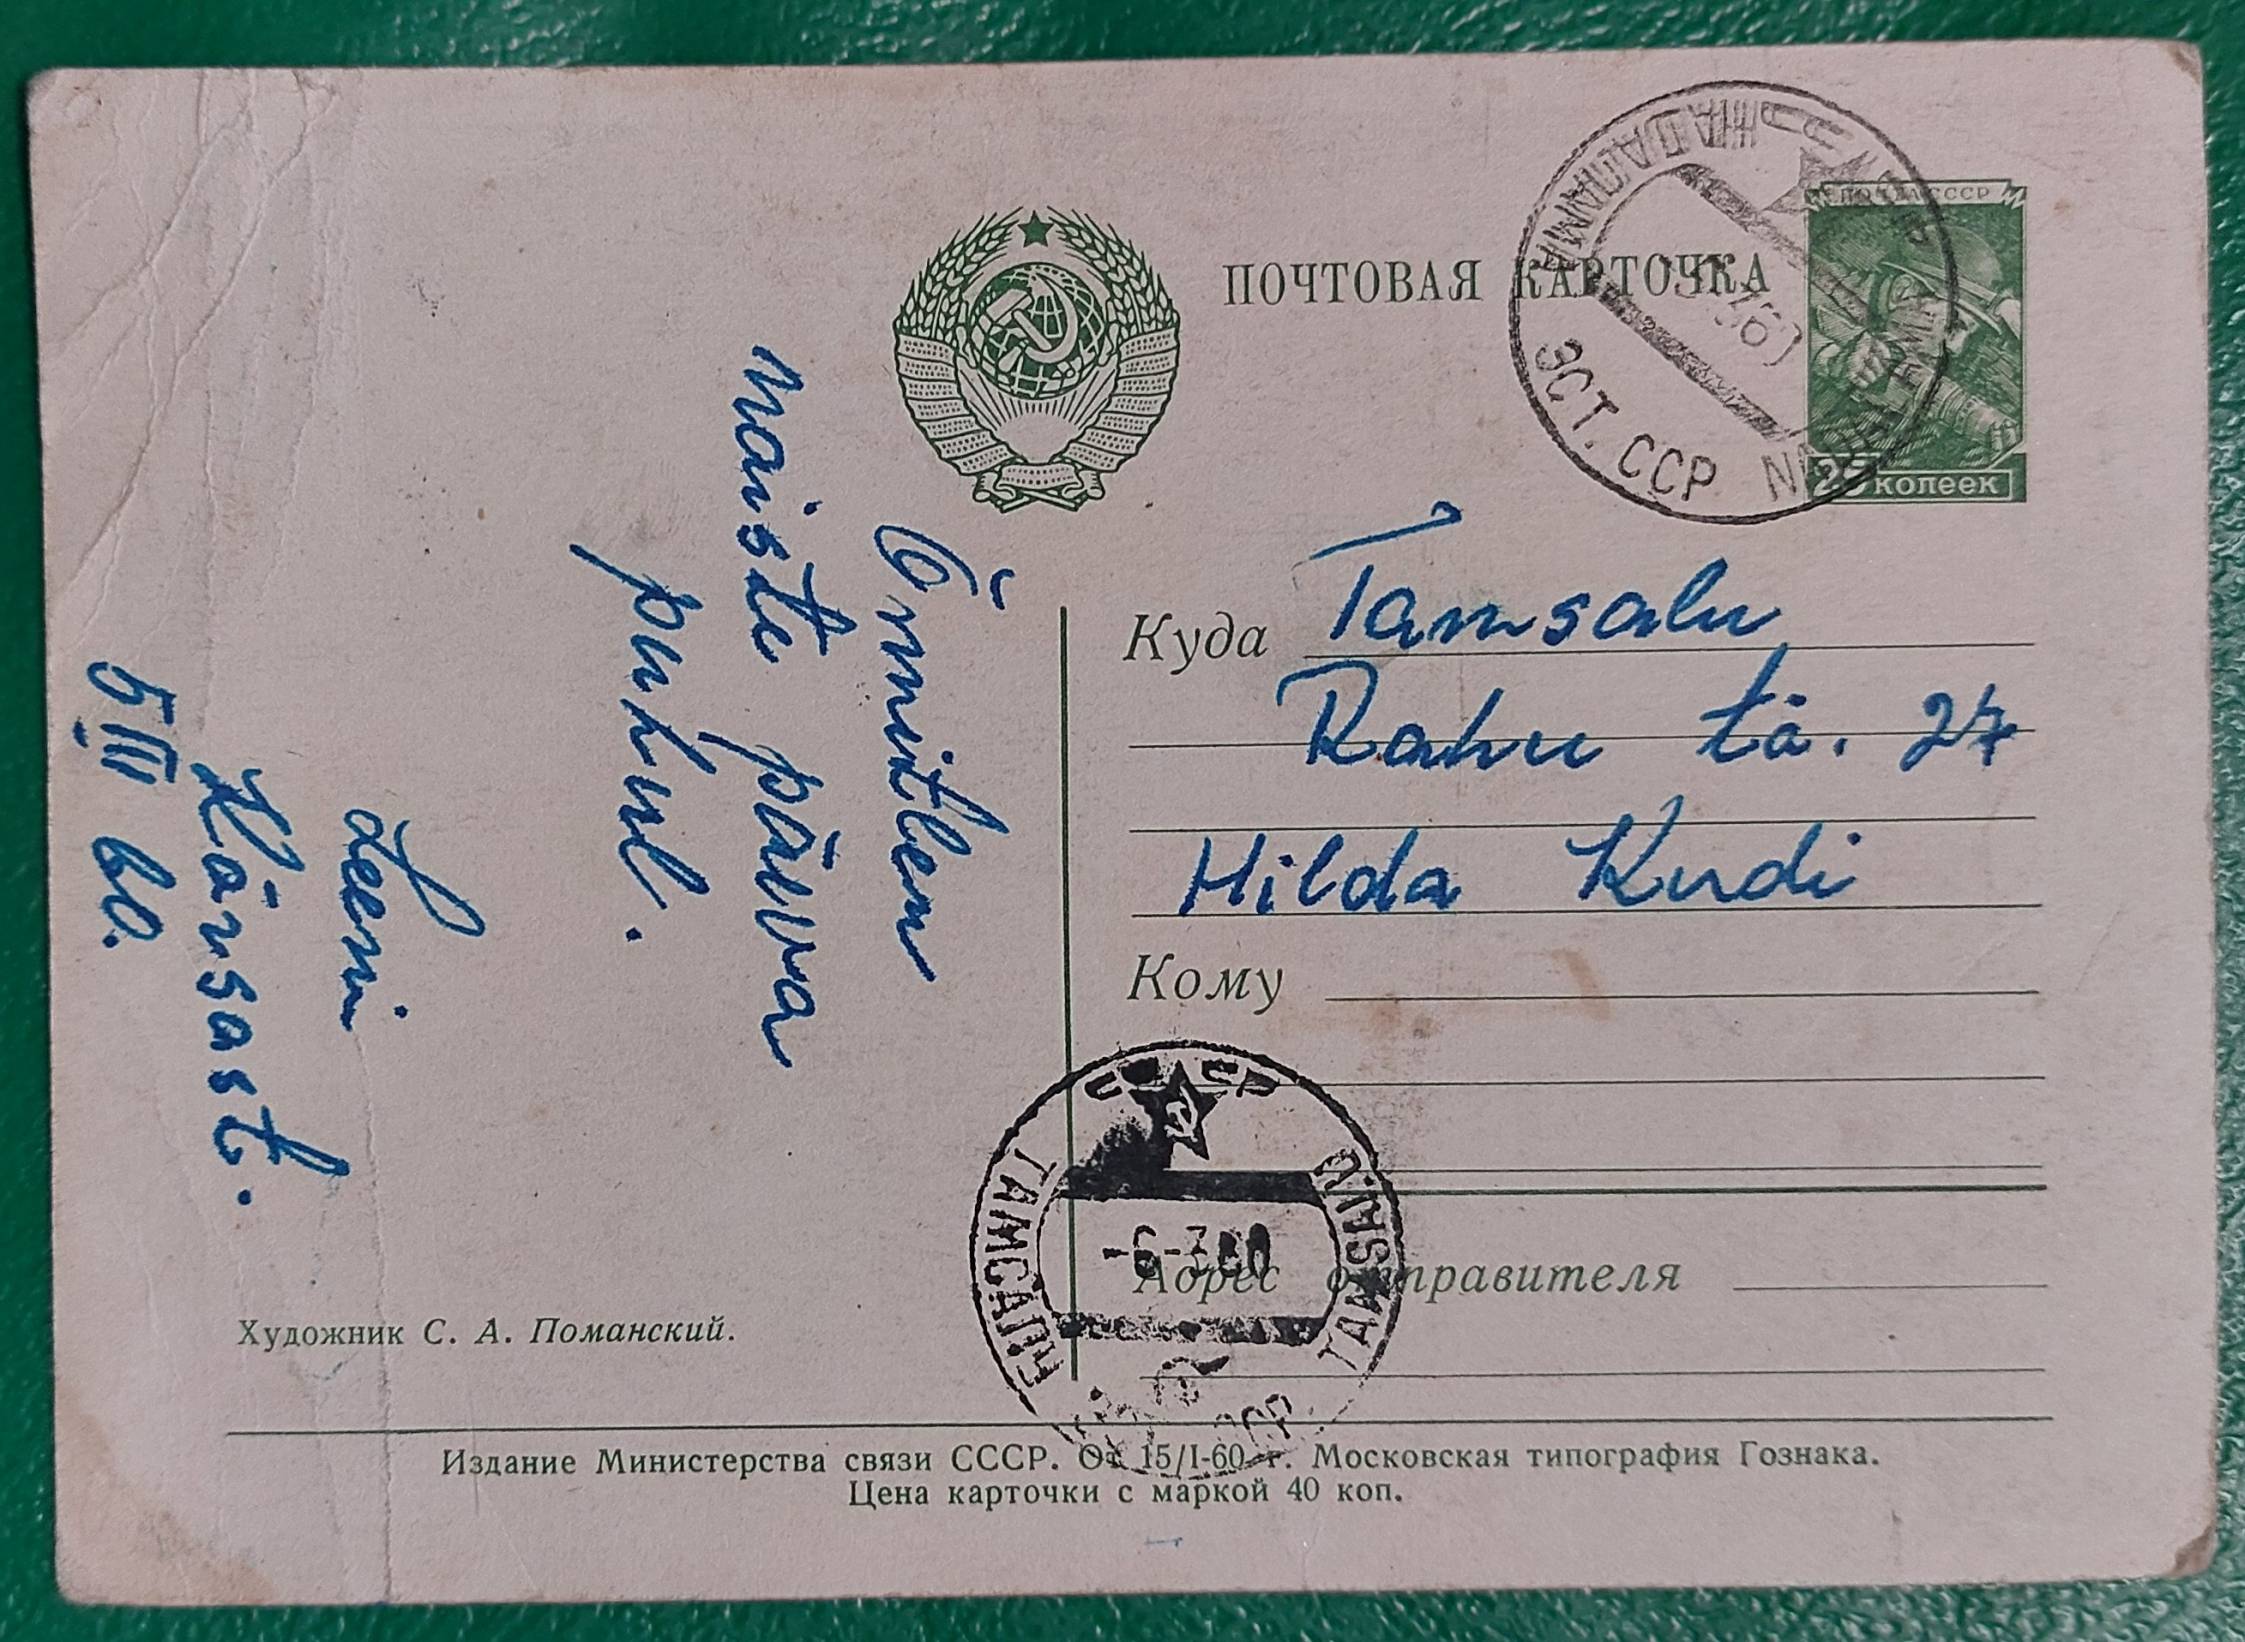 ПОЧТОВАЯ КАРТОЧКА
ПОЧТА СССР
25 копеек
ЭСТ. ССР
Õnnitlen
naiste päeva
puhul.
Leeni
Kärsast.
5 III 60.
Куда Tamsalu
Rahu tä. 27
Hilda Kurdi
Кому
СССР
ТАМСАЛУ
-6-3.60
TAMSALU
ССР.
Адрес отправителя
Художник С. А. Поманский.
Издание Министерства связи СССР. От 15/I-60 г. Московская типография Гознака.
Цена карточки с маркой 40 коп.